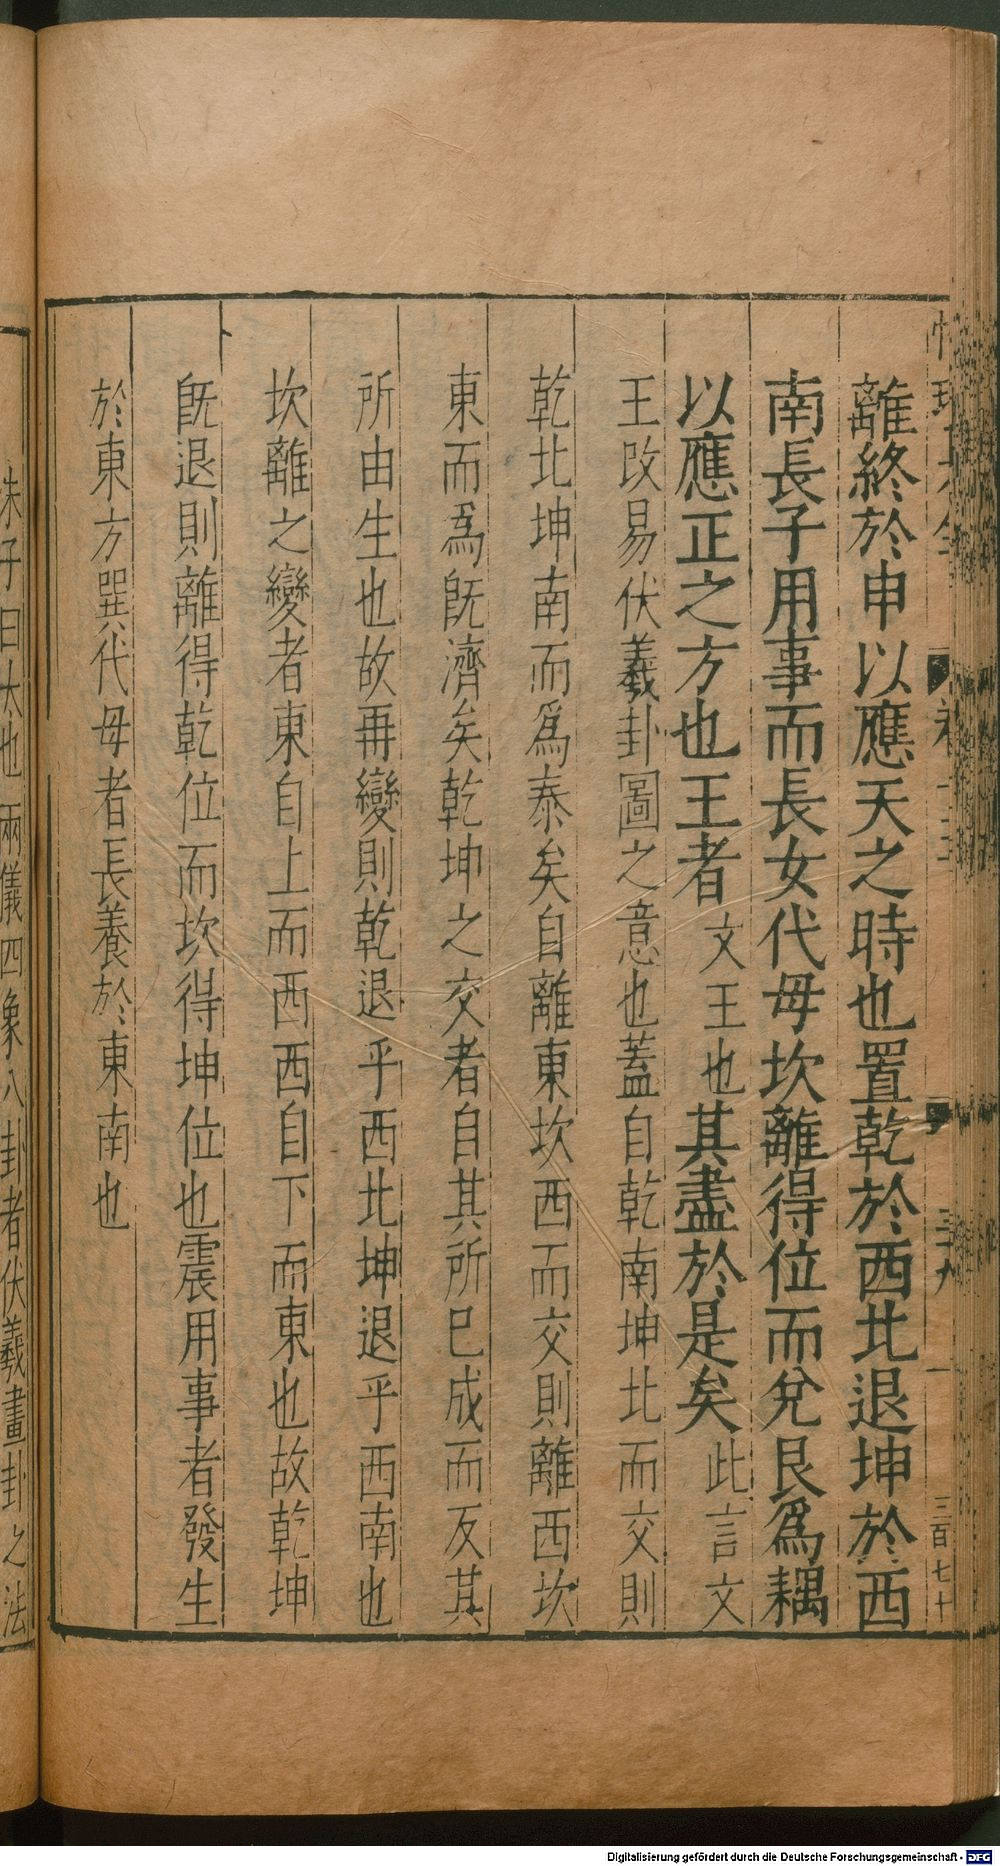 離終於申以應天之時也置乾於西北退坤於西
南長子用事而長女代母坎離得位而兌艮爲耦
以應正之方也王者文王也其盡於是矣此言文
王改易伏羲卦圖之意也蓋自乾南坤北而交則
乾北坤南而爲泰矣自離東坎西而交則離西坎
東而爲旣濟矣乾坤之交者自其所巳成而反其
所由生也故再變則乾退乎西北坤退乎西南也
坎離之變者東自上而西西自下而東也故乾坤
旣退則離得乾位而坎得坤位也震用事者發生
於東方巽代母者長養於東南也
三十八
三百七十
朱子曰太也兩儀四象八卦者伏羲畫卦之法
Digitalisierung gefördert durch die Deutsche Forschungsgemeinschaft - DFG